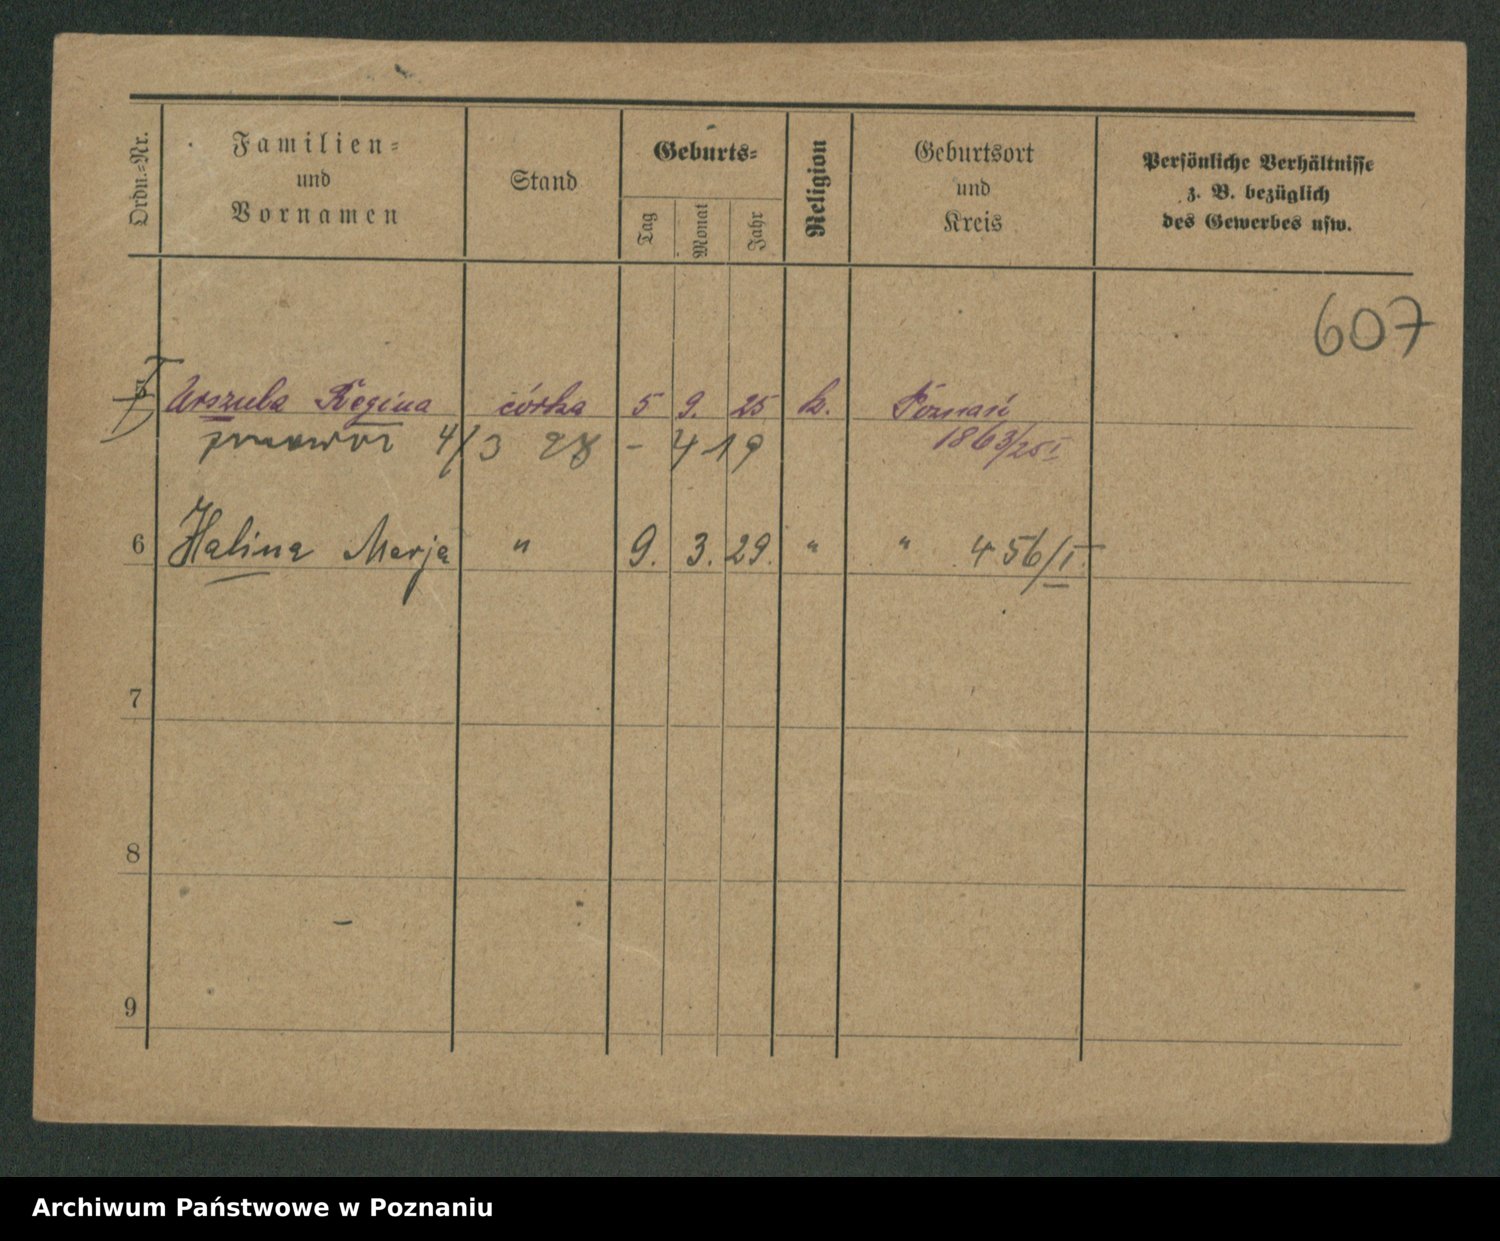 Ordn.-Nr.
Familien-
und
Vornamen
Stand
Geburts-
Tag
Monat
Jahr
Religion
Geburtsort
und
Kreis
Persönliche Verhältnisse
z. B. bezüglich
des Gewerbes usw.
607
5 Urszula Regina córka 5 9. 25 k. Poznań
4/3 28 - 419 1863/25 I
6 Halina Marja " 9. 3. 29. " " 456/I.
7
8
9
Archiwum Państwowe w Poznaniu